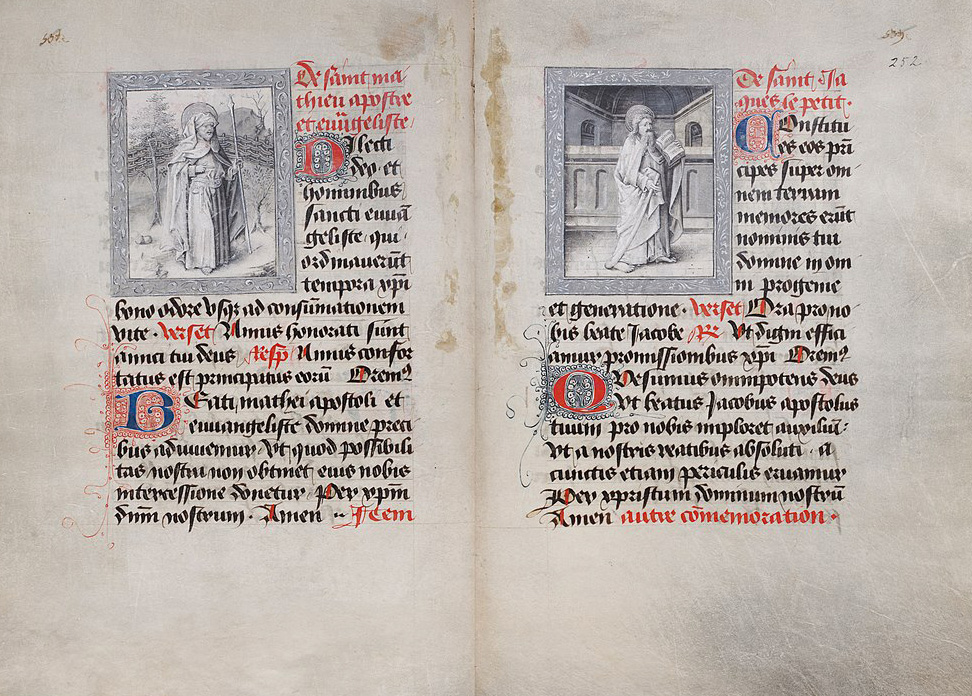 De saint ma
thieu apostre
et euūgeliste
Dilecti
deo et
hominibus
sancti euuā
geliste qui
ordinauerūt
tempora xp̄i
bono odore vsq̄ ad consūmationem
vite . verset Nimis honorati sunt
amici tui deus Resp̄ Nimis confor
tatus est principatus eorū Oremꝰ
BEati mathei apostoli et
euuangeliste domine preci
bus adiuuemur . vt quod possibili
tas nostra non obtinet eius nobis
intercessione donetur . Per xp̄m
dn̄m nostrum . Amen .. Item
252
De saint Ja
ques le petit .
COnstitu
es eos prī
cipes super om
nem terram
memores erūt
nominis tui
domine in om
ni progenie
et generatione . verset Ora pro no
bis beate Jacobe R̄ Vt digni effici
amur promissionibus xp̄i Oremꝰ
QVesumus omnipotens deus
Vt beatus Jacobus apostolus
tuum pro nobis imploret auxiliū :
Vt a nostris reatibus absoluti . a
cunctis etiam periculis eruamur
Per xpristum dominum nostrū
Amen autre cōmemoration .